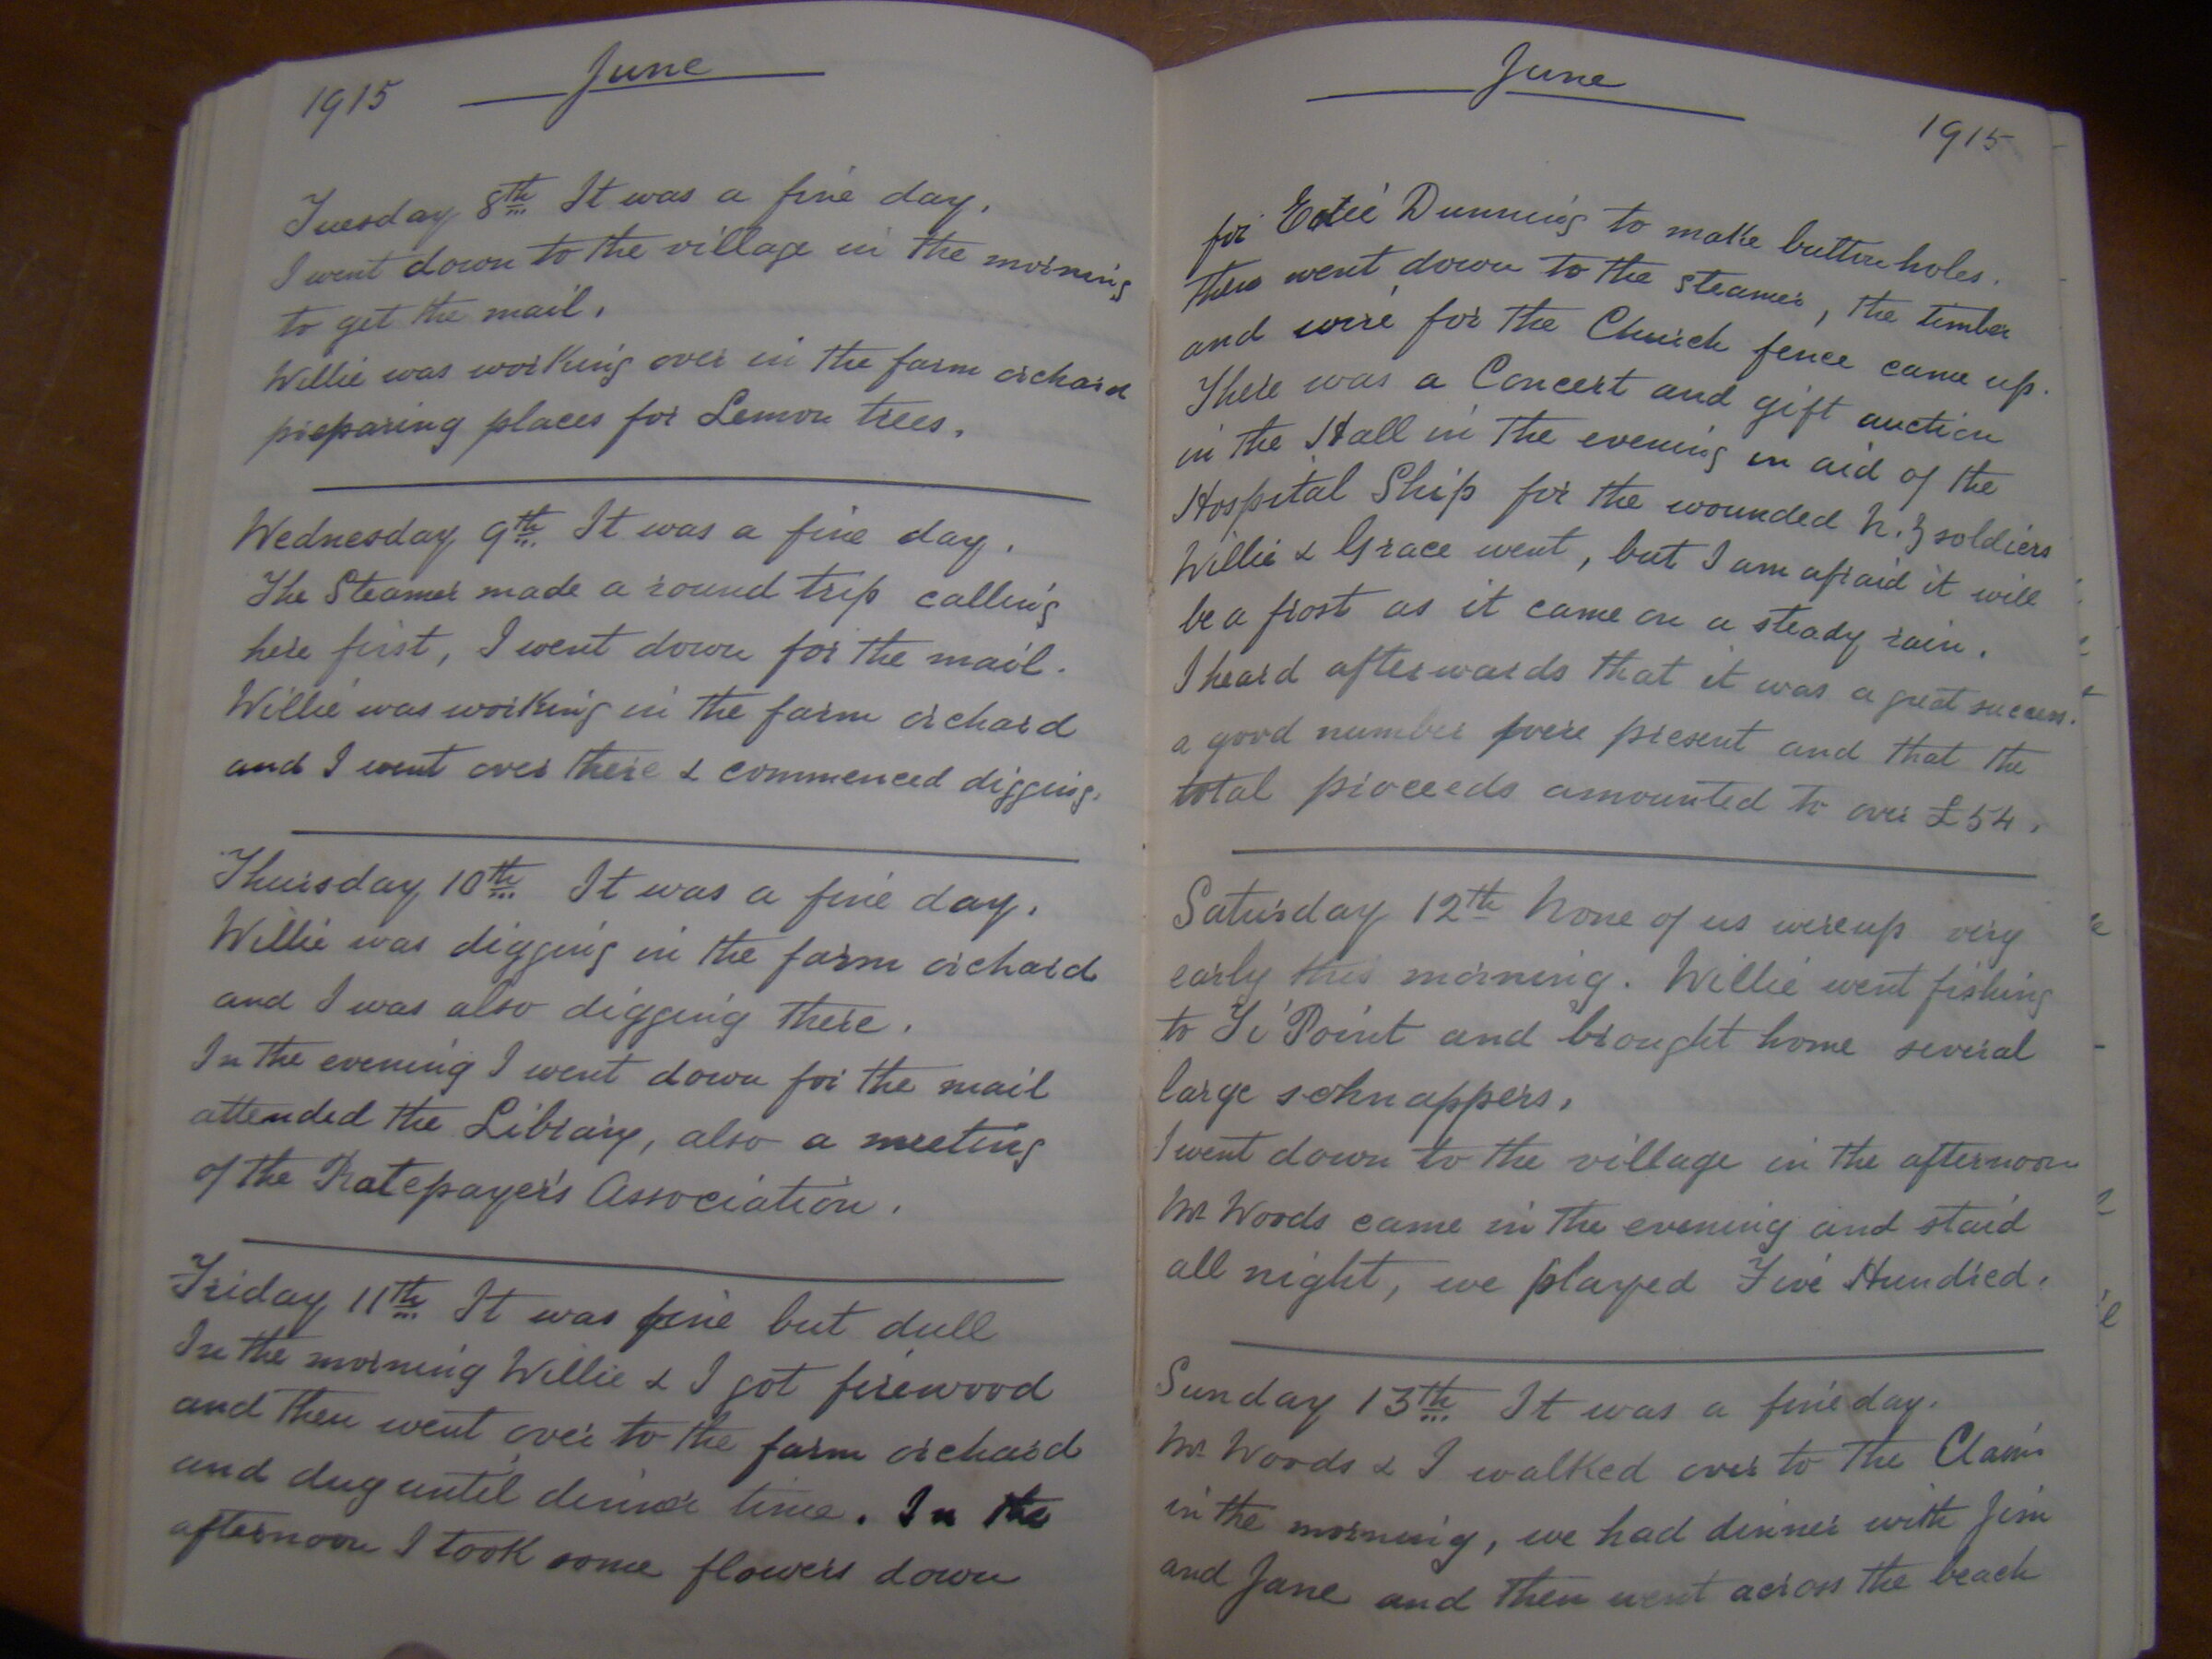 1915 June
Tuesday 8th It was a fine day.
I went down to the village in the morning
to get the mail.
Willie was working over in the farm orchard
preparing places for Lemon trees.
Wednesday 9th It was a fine day.
The Steamer made a round trip calling
here first, I went down for the mail.
Willie was working in the farm orchard
and I went over there & commenced digging.
Thursday 10th It was a fine day.
Willie was digging in the farm orchard
and I was also digging there.
In the evening I went down for the mail
attended the Library, also a meeting
of the Ratepayer's Association.
Friday 11th It was fine but dull
In the morning Willie & I got firewood
and then went over to the farm orchard
and dug until dinner time. In the
afternoon I took some flowers down
June 1915
for Dunning to make buttonholes.
then went down to the steamer, the timber
and wire for the Church fence came up.
There was a Concert and gift auction
in the Hall in the evening in aid of the
Hospital Ship for the wounded N.Z soldiers
Willie & Grace went, but I am afraid it will
be a frost as it came on a steady rain.
I heard afterwards that it was a great success.
a good number were present and that the
total proceeds amounted to over £54.
Saturday 12th None of us were up very
early this morning. Willie went fishing
to Ti Point and brought home several
large schnappers.
I went down to the village in the afternoon
Mr Woods came in the evening and staid
all night, we played Five Hundred.
Sunday 13th It was a fine day.
Mr Woods & I walked over to the Claim
in the morning, we had dinner with Jim
and Jane and then went across the beach